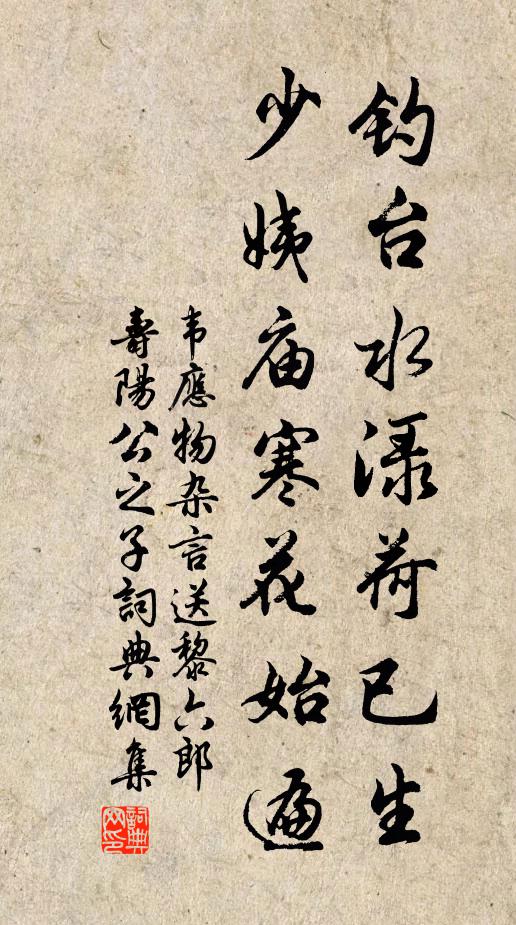 钓台水渌荷已生
少姨庙寒花始遍
韦應物杂言送黎六郎
壽陽公之子詞典網集
詞典网印